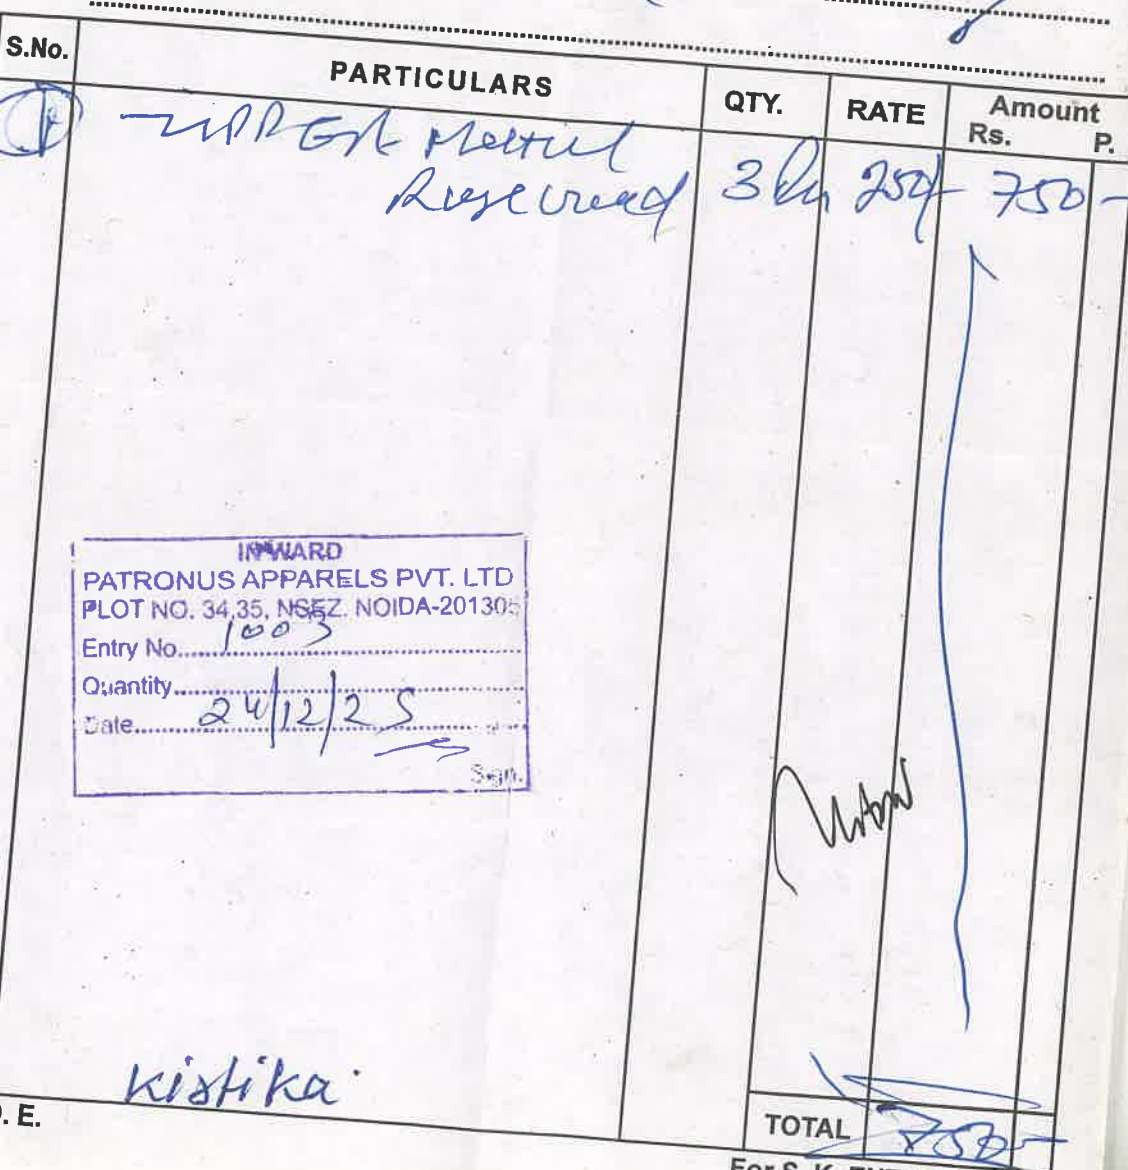 S.No. PARTICULARS QTY. RATE Amount
Rs. P.
1
3 250/- 750 -
INWARD
PATRONUS APPARELS PVT. LTD
PLOT NO. 34,35, NSEZ, NOIDA-201305
Entry No. 1003
Quantity
Date 24/12/25
Sign.
Kistika
. E.
TOTAL 750 -
For S. K.